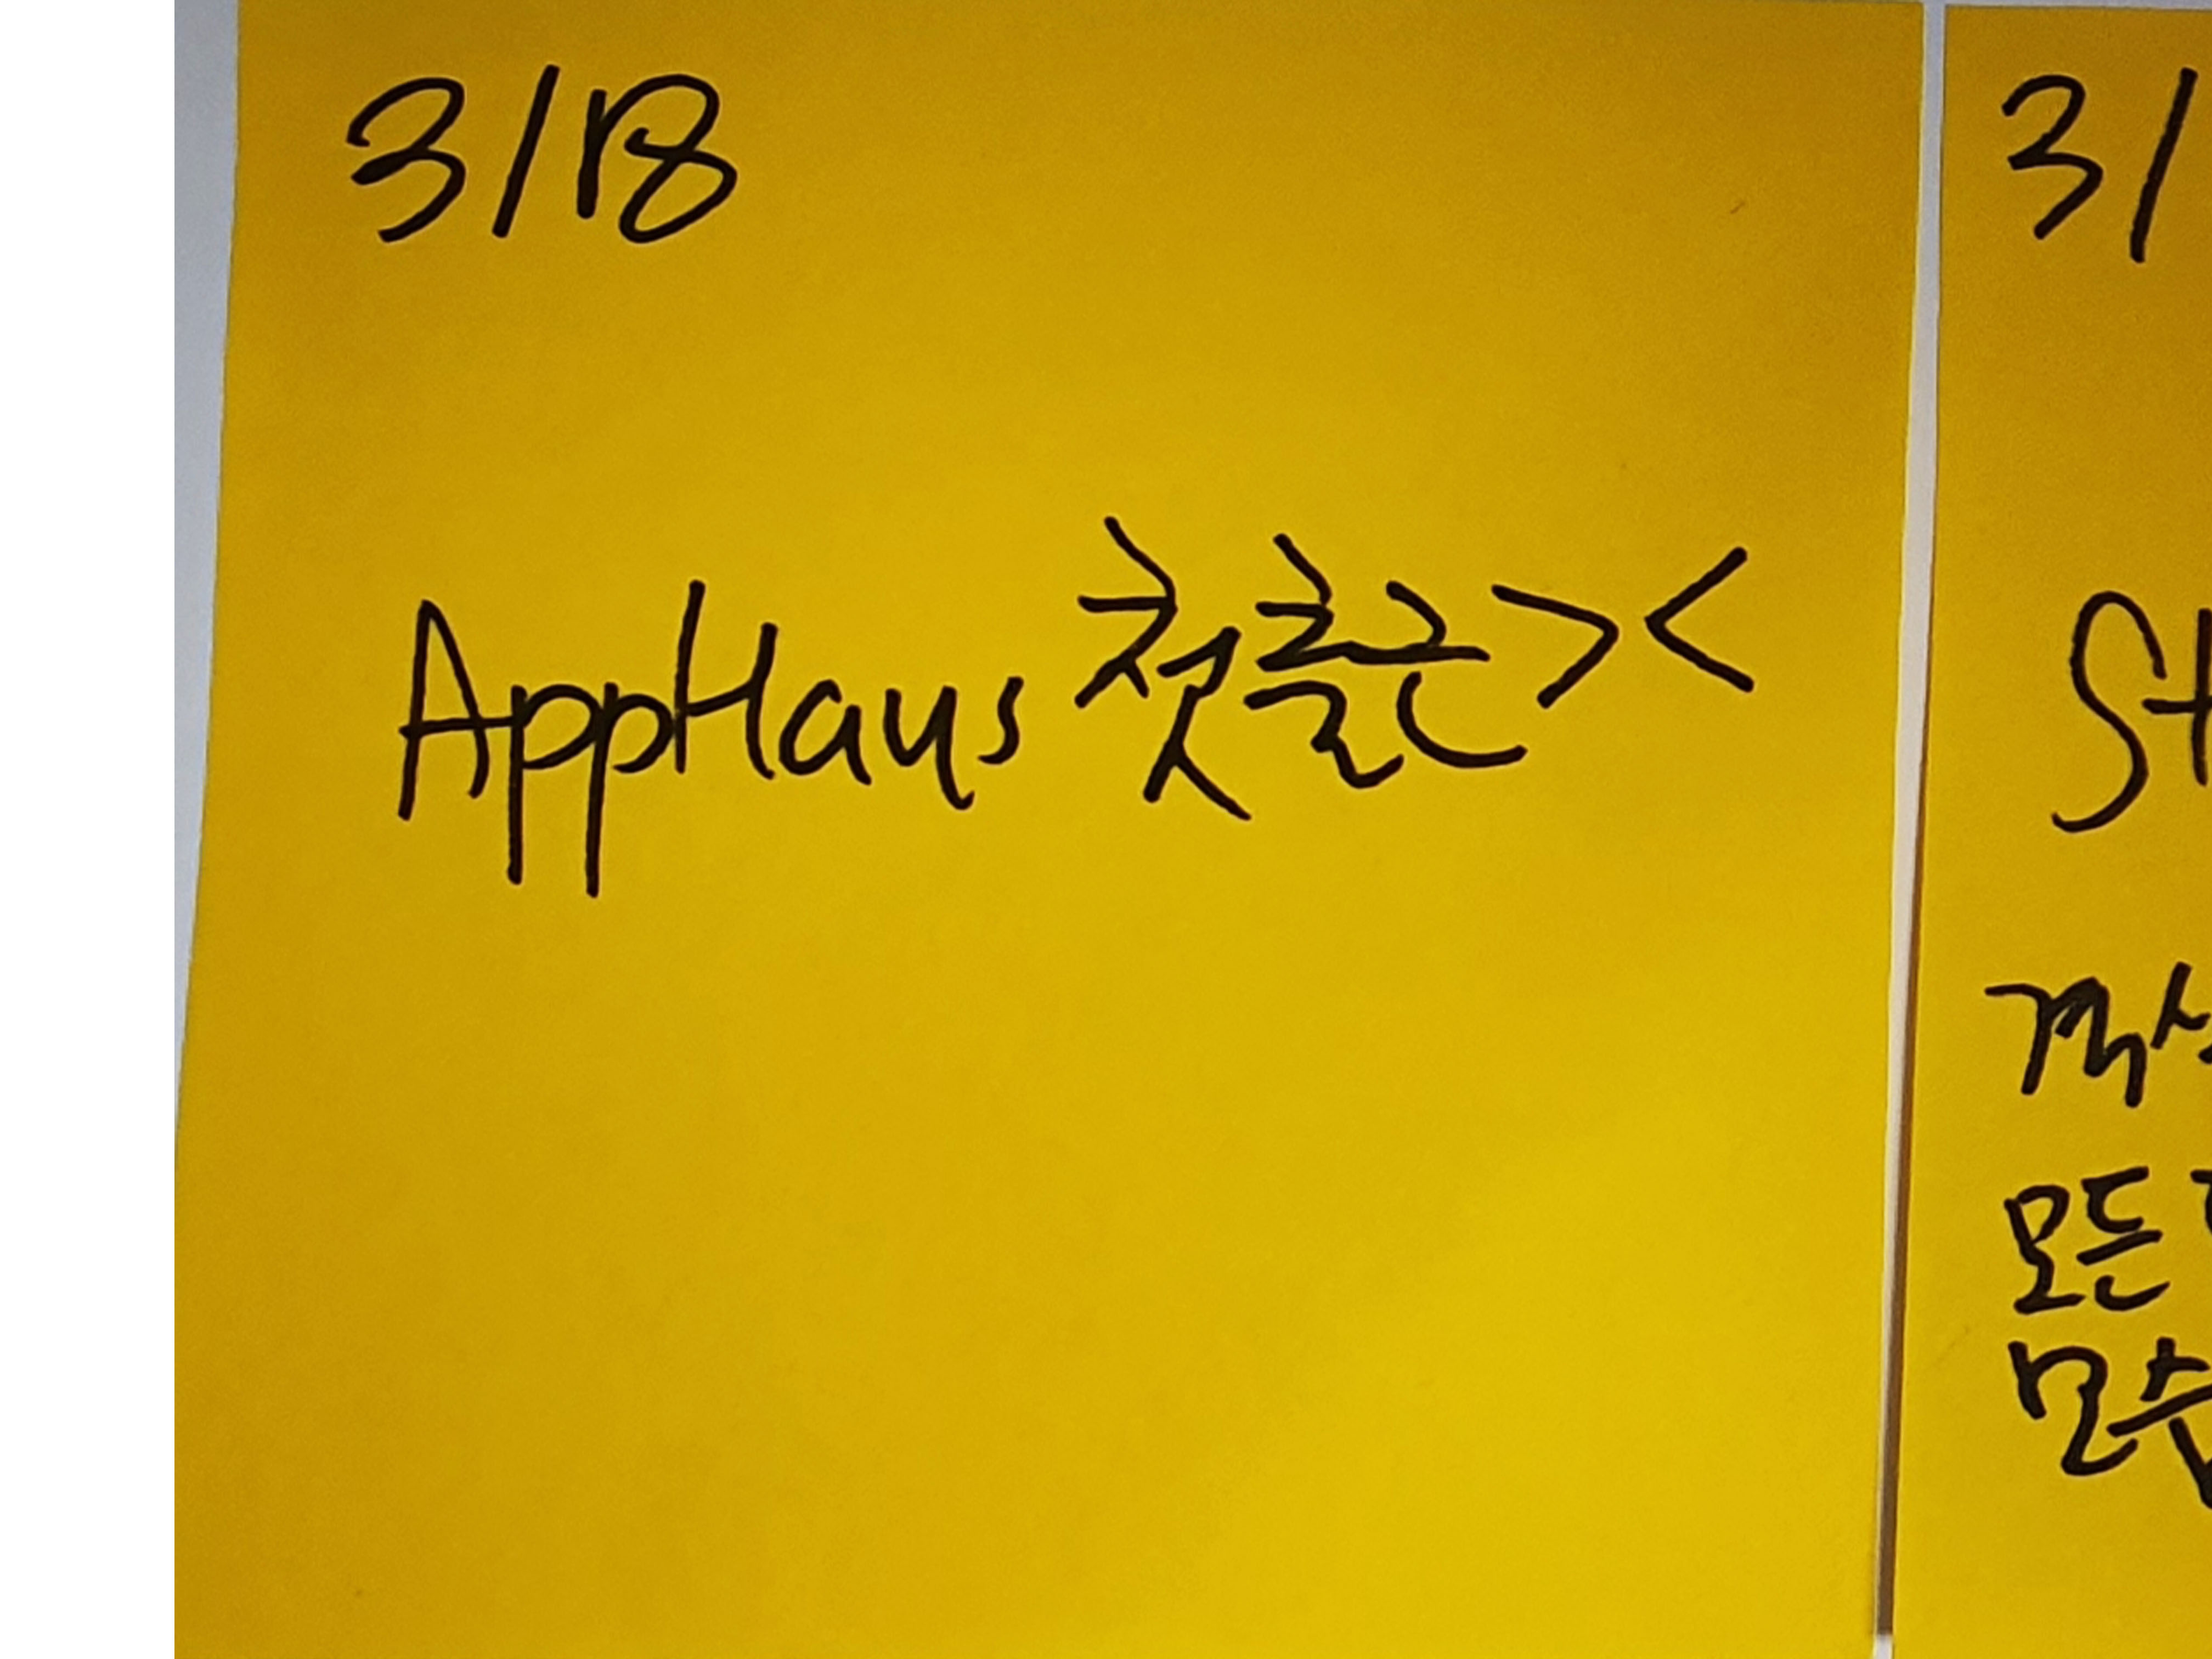 3/18
AppHaus 첫출근><
3/
St
모든